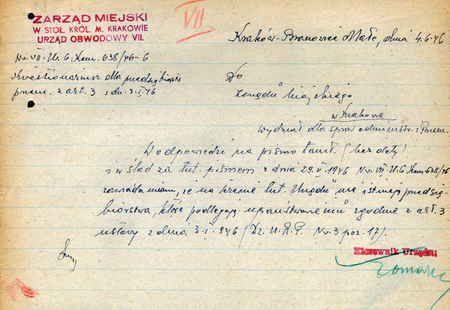 ZARZĄD MIEJSKI
W STOŁ. KRÓL. M. KRAKOWIE
URZĄD OBWODOWY VII.
VII
Kraków - Bronowice Małe, dnia 4.6.46
Nr. VII-Ur 6 Kem. 638/46-6
Kwestionariusz dla przedsiębiorstw
przem. z art. 3 z dn. 3.I.46
Do
Zarządu Miejskiego
w Krakowie
Wydział dla spraw administr. i Przem.
W odpowiedzi na pismo tamt. (bez daty)
i w ślad za tut. pismem z dnia 29.V.1946 Nr. VII Ur. 6 Kem 638/46
zawiadamiam, że na terenie tut. Urzędu nie istnieją przedsię-
biorstwa, które podlegają upaństwowieniu zgodnie z art. 3
ustawy z dnia 3.I.946 (Dz. U.R.P. Nr. 3 poz. 17).
Kierownik Urzędu: